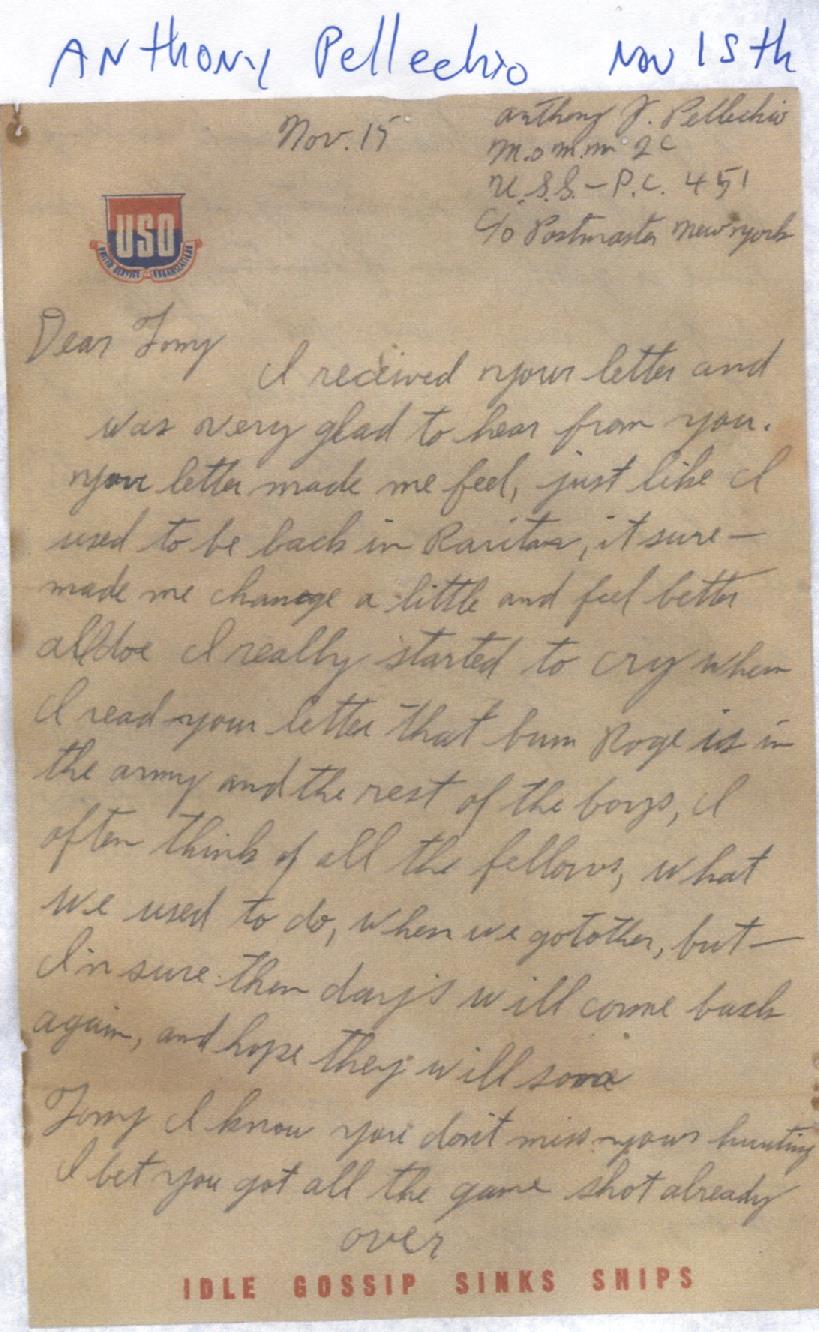 Anthony Pellechio Nov 15th
Nov. 15
Anthony J. Pellechio
M.o.m.m 2c
U.S.S. – P.C. 451
c/o Postmaster New York
USO
UNITED SERVICE ORGANIZATIONS
Dear Tony
I received your letter and
was very glad to hear from you.
your letter made me feel, just like I
used to be back in Raritan, it sure –
made me change a little and feel better
alldoe I really started to cry when
I read your letter that bum Roge is in
the army and the rest of the boys, I
often think of all the fellows, what
we used to do, when we gotother, but –
I'm sure them day's will come back
again, and hope they will
Tony I know you don't miss your hunting
I bet you got all the game shot already
over
IDLE GOSSIP SINKS SHIPS